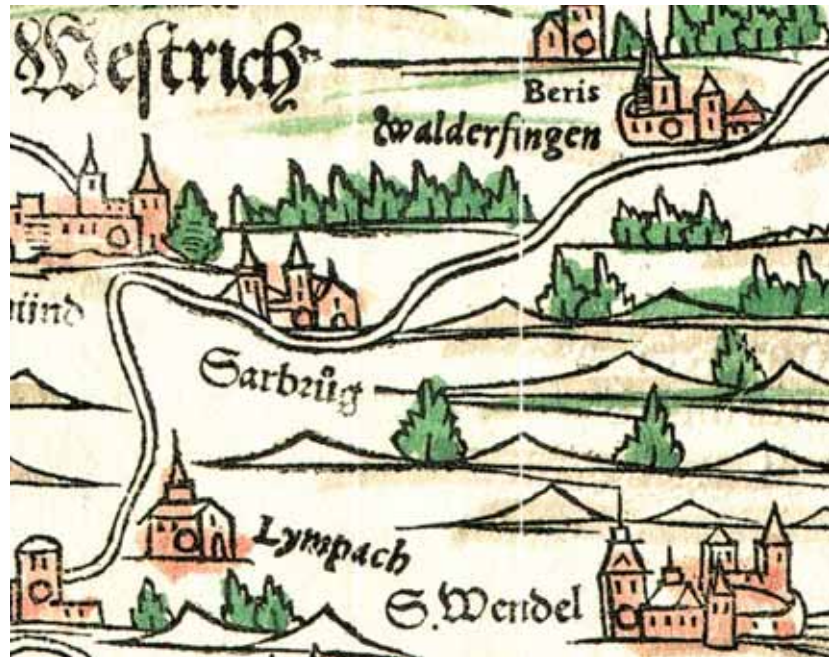 Westrich
Beris
Walderfingen
münd
Sarbrůg
Lympach
S. Wendel